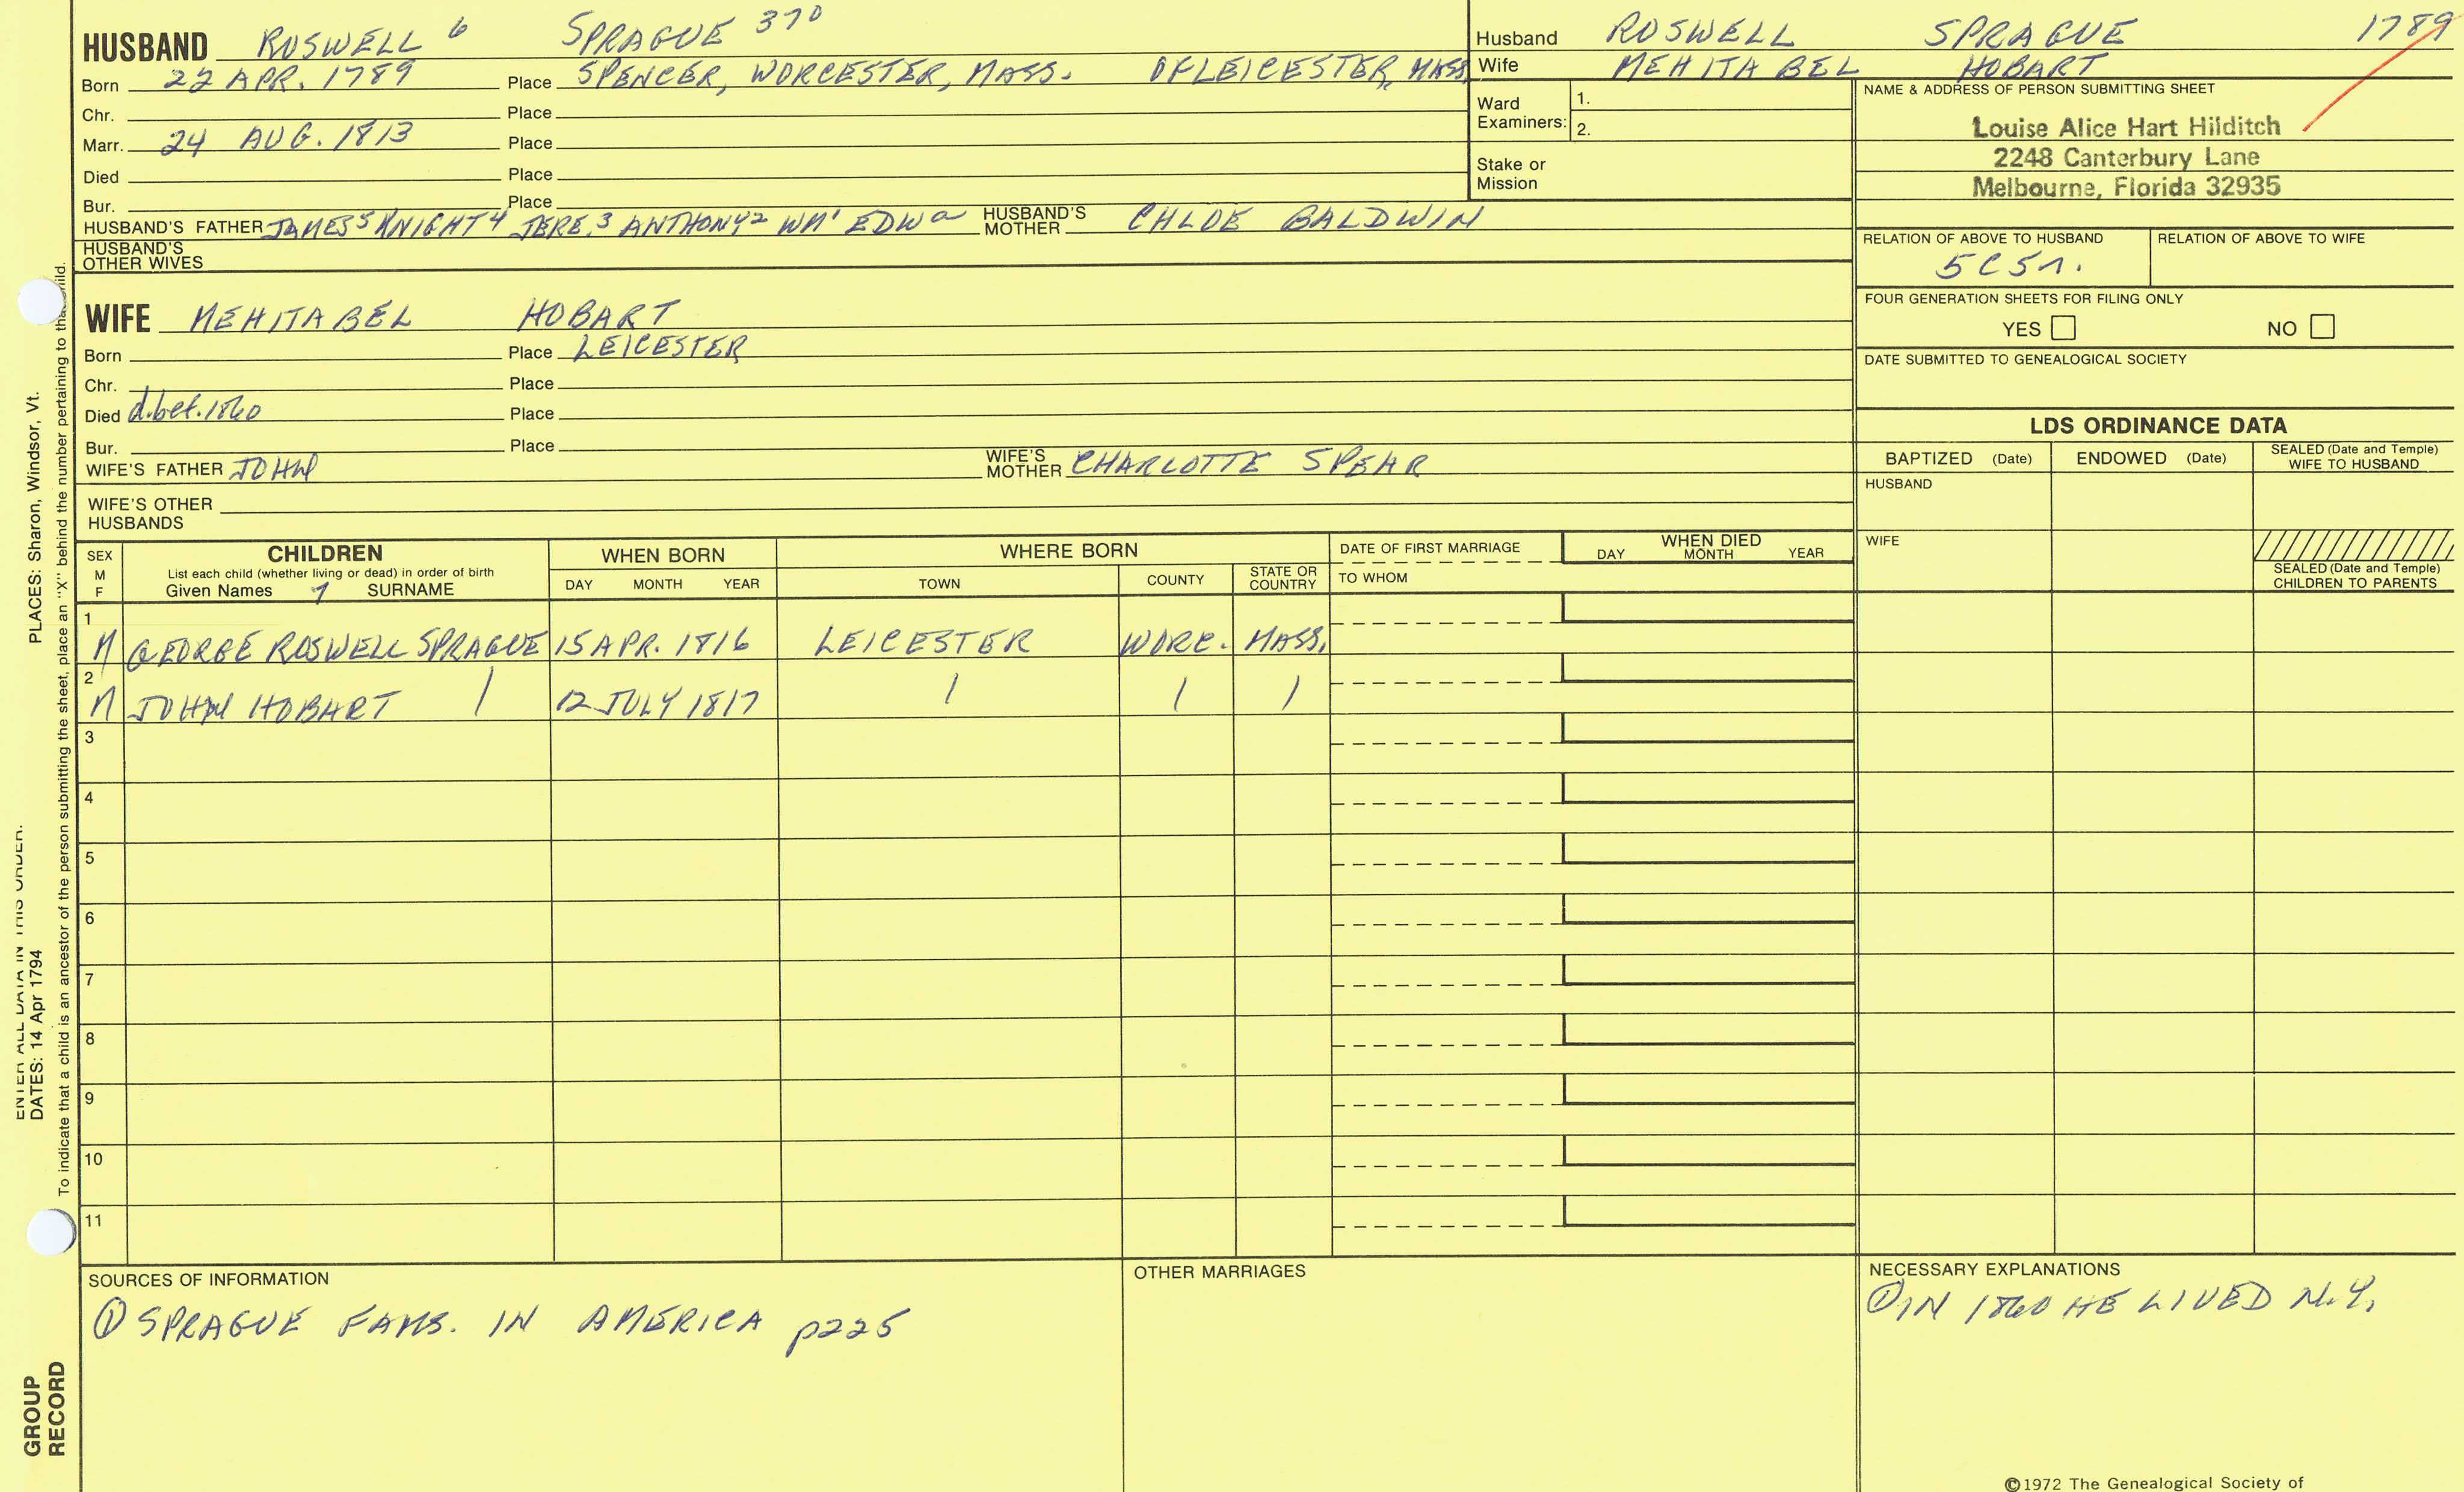 HUSBAND ROSWELL 6 SPRAGUE 370
Born 22 APR. 1789 Place SPENCER, WORCESTER, MASS. OF LEICESTER, MASS
Chr. Place
Marr. 24 AUG. 1813 Place
Died Place
Bur. Place
HUSBAND'S FATHER JAMES5 KNIGHT4 JERE.3 ANTHONY2 WM1 EDWa HUSBAND'S MOTHER CHLOE BALDWIN
HUSBAND'S OTHER WIVES
Husband ROSWELL SPRAGUE 1789
Wife MEHITABEL HOBART
Ward Examiners: 1.
2.
Stake or Mission
NAME & ADDRESS OF PERSON SUBMITTING SHEET
Louise Alice Hart Hilditch
2248 Canterbury Lane
Melbourne, Florida 32935
RELATION OF ABOVE TO HUSBAND RELATION OF ABOVE TO WIFE
5C5r.
FOUR GENERATION SHEETS FOR FILING ONLY
YES NO
DATE SUBMITTED TO GENEALOGICAL SOCIETY
WIFE MEHITABEL HOBART
Born Place LEICESTER
Chr. Place
Died d.bef.1860 Place
Bur. Place
WIFE'S FATHER JOHN WIFE'S MOTHER CHARLOTTE SPEAR
WIFE'S OTHER HUSBANDS
LDS ORDINANCE DATA
BAPTIZED (Date) ENDOWED (Date) SEALED (Date and Temple) WIFE TO HUSBAND
HUSBAND
WIFE
SEALED (Date and Temple) CHILDREN TO PARENTS
SEX M F
CHILDREN
List each child (whether living or dead) in order of birth
Given Names 7 SURNAME
WHEN BORN
DAY MONTH YEAR
WHERE BORN
TOWN COUNTY STATE OR COUNTRY
DATE OF FIRST MARRIAGE
TO WHOM
WHEN DIED
DAY MONTH YEAR
1 M GEORGE ROSWELL SPRAGUE 15 APR. 1816 LEICESTER WORC. MASS.
2 M JOHN HOBART | 12 JULY 1817 | | |
3
4
5
6
7
8
9
10
11
SOURCES OF INFORMATION
① SPRAGUE FAMS. IN AMERICA p225
OTHER MARRIAGES
NECESSARY EXPLANATIONS
① IN 1860 HE LIVED N.Y.
©1972 The Genealogical Society of
ENTER ALL DATA IN THIS ORDER.
DATES: 14 Apr 1794 PLACES: Sharon, Windsor, Vt.
To indicate that a child is an ancestor of the person submitting the sheet, place an "X" behind the number pertaining to that child.
GROUP
RECORD